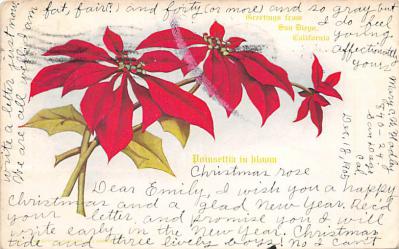 Greetings from
San Diego,
California
Poinsettia in bloom
Christmas rose
Dear Emily, I wish you a happy
Christmas and a glad New Year. Rec'd
your letter, and promise you I will
write early in the New Year. Christmas
tide and three lively boys, no s can't
write a letter just now
I am fat, fair(?) and forty (or more) and so gray but
I do feel
young.
affectionately
yours
Mary
840-24
San Diego
Cal
Dec 18, 1905